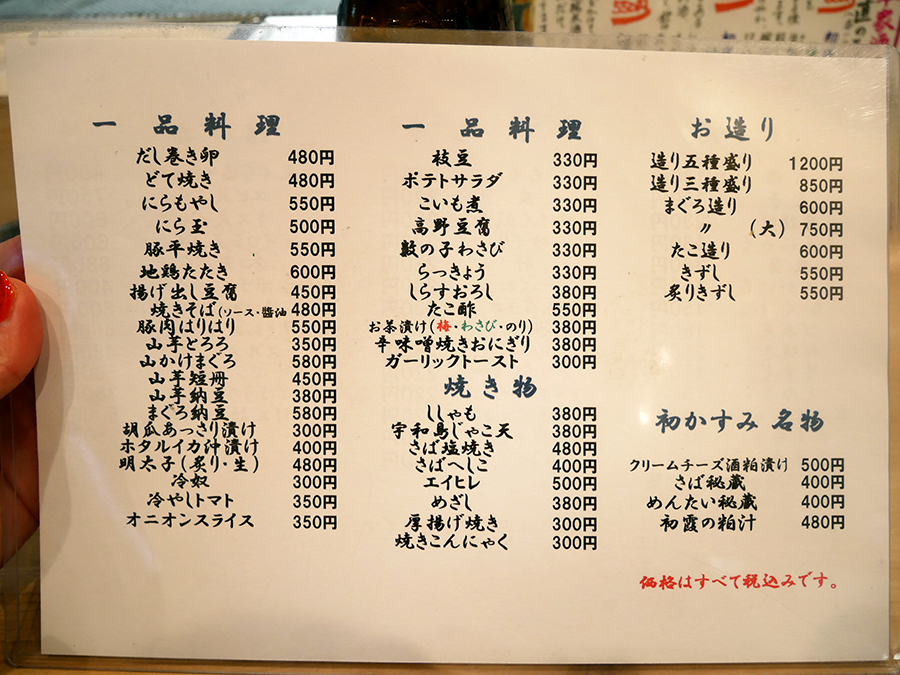 一品料理
だし巻き卵 480円
どて焼き 480円
にらもやし 550円
にら玉 500円
豚平焼き 550円
地鶏たたき 600円
揚げ出し豆腐 450円
焼きそば(ソース・醤油 480円
豚肉はりはり 550円
山芋とろろ 350円
山かけまぐろ 580円
山芋短冊 450円
山芋納豆 380円
まぐろ納豆 580円
胡瓜あっさり漬け 300円
ホタルイカ沖漬け 400円
明太子(炙り・生) 480円
冷奴 300円
冷やしトマト 350円
オニオンスライス 350円
一品料理
枝豆 330円
ポテトサラダ 330円
こいも煮 330円
高野豆腐 330円
数の子わさび 330円
らっきょう 330円
しらすおろし 380円
たこ酢 550円
お茶漬け(梅・わさび・のり) 380円
辛味噌焼きおにぎり 380円
ガーリックトースト 300円
焼き物
ししゃも 380円
宇和島じゃこ天 380円
さば塩焼き 480円
さばへしこ 400円
エイヒレ 500円
めざし 380円
厚揚げ焼き 300円
焼きこんにゃく 300円
お造り
造り五種盛り 1200円
造り三種盛り 850円
まぐろ造り 600円
〃 (大) 750円
たこ造り 600円
きずし 550円
炙りきずし 550円
初かすみ 名物
クリームチーズ酒粕漬け 500円
さば秘蔵 400円
めんたい秘蔵 400円
初霞の粕汁 480円
価格はすべて税込みです。